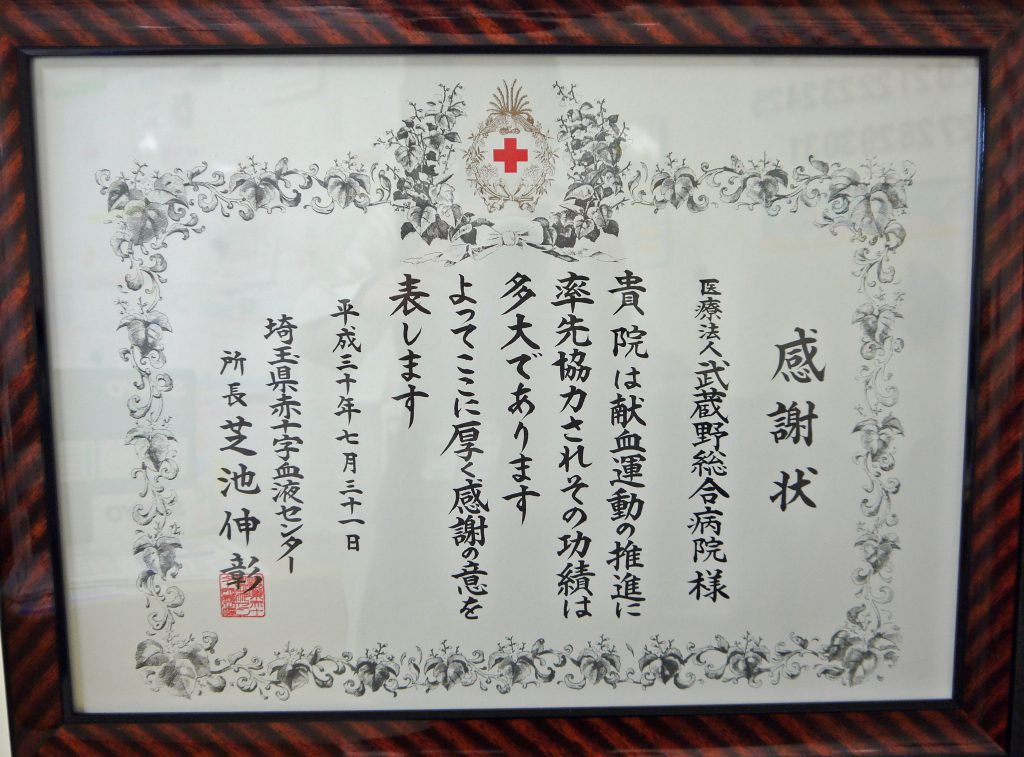 感謝状
医療法人武蔵野総合病院様
貴院は献血運動の推進に
率先協力されその功績は
多大であります
よってここに厚く感謝の意を
表します
平成三十年七月三十一日
埼玉県赤十字血液センター
所長芝池伸彰